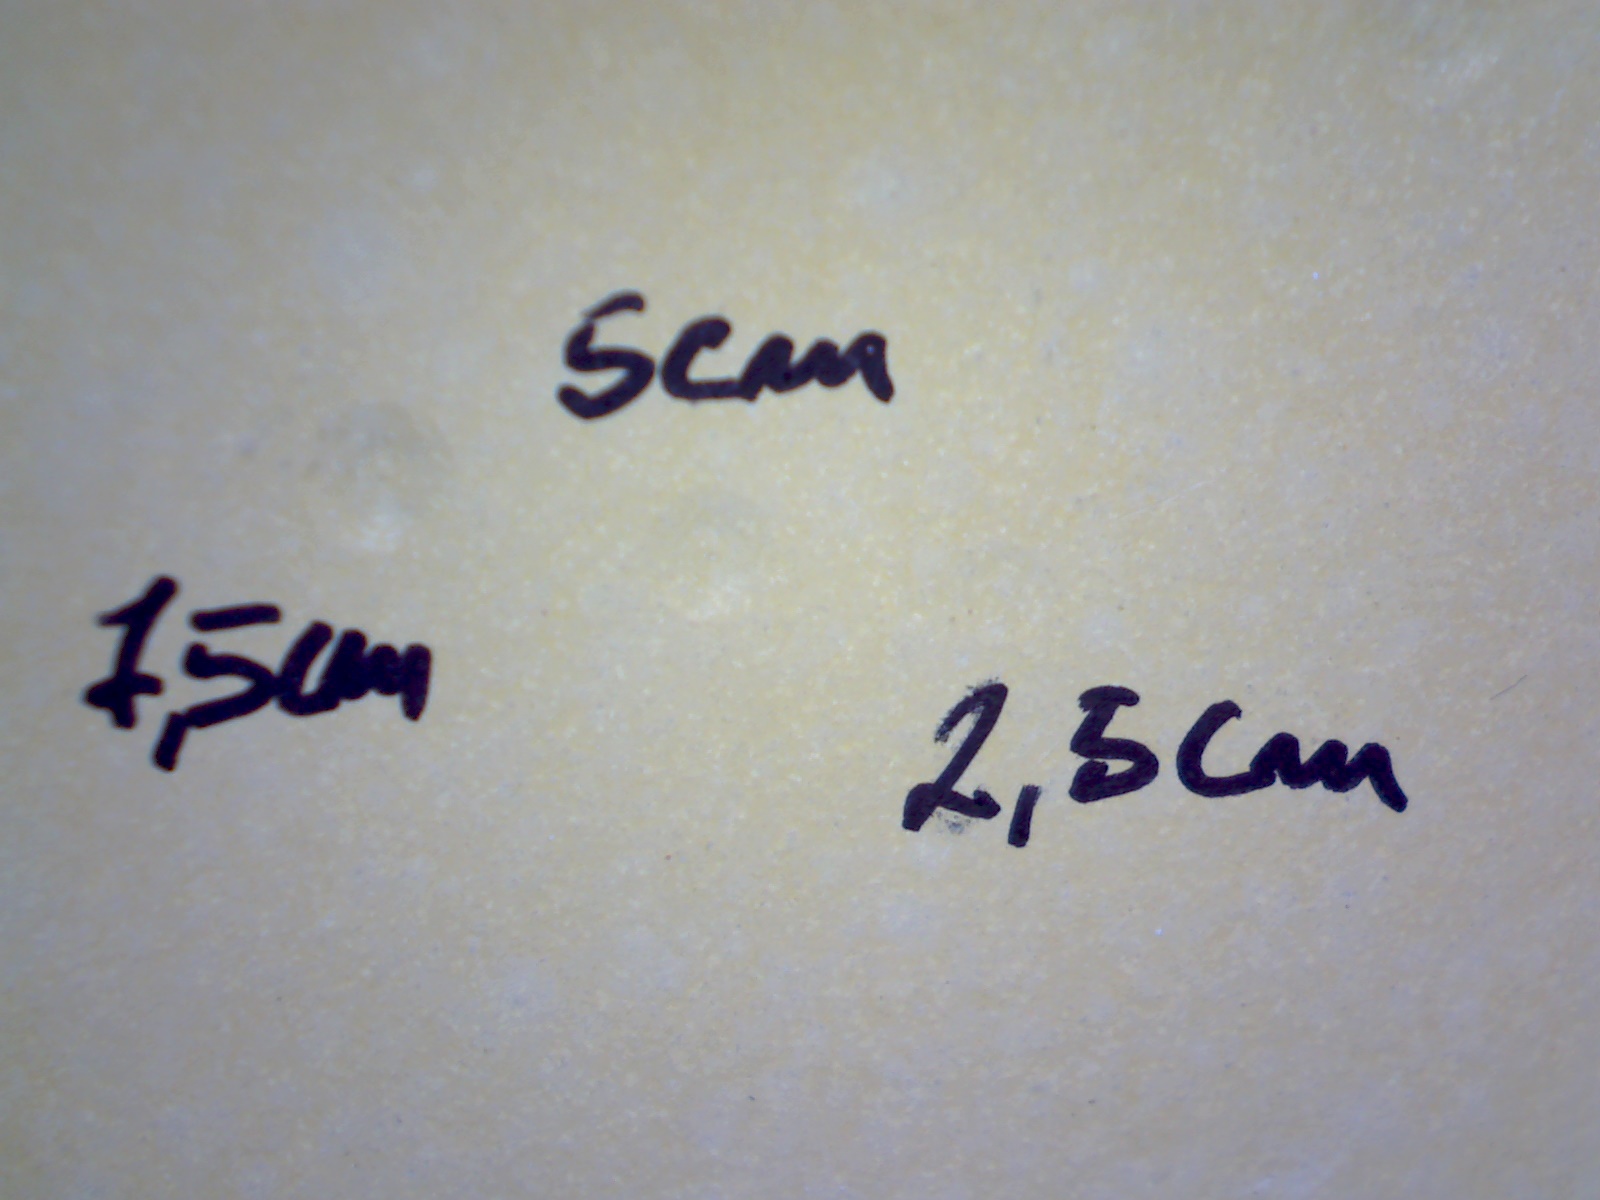 5cm
1,5cm
2,5cm